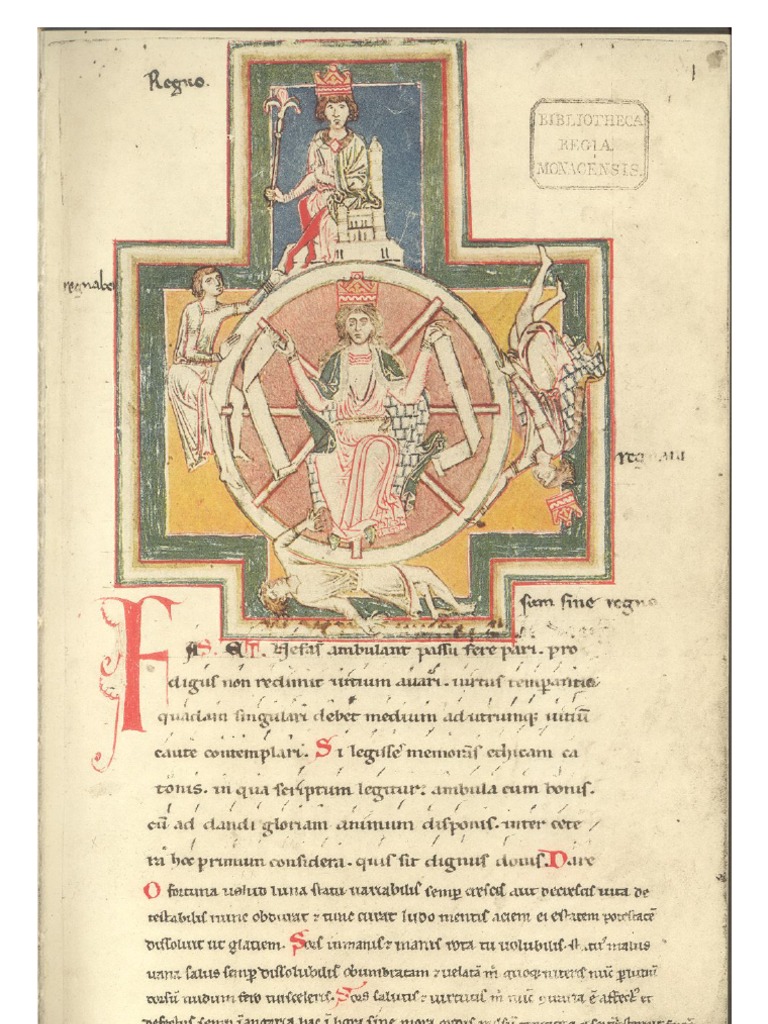 Regno.
BIBLIOTHECA
REGIA
MONACENSIS.
regnabo
regnaui
sum sine regno
FAS ET Nefas ambulant passu fere pari. pro
digus non redimit uitium auari. uirtus temperantie
quadam singulari debet medium ad utrumque uitiū
caute contemplari. Si legisse memoras ethicam ca
tonis. in qua scriptum legitur. ambula cum bonis.
cū ad dandi gloriam animum disponis. inter cete
ra hoc primum considera. quis sit dignus donis. Dare
O fortuna uelud luna statu uariabilis semper crescis aut decrescis uita de
testabilis nunc obdurat & tunc curat ludo mentis aciem egestatem potestatē
dissoluit ut glatiem. Sors inmanis & inanis rota tu uolubilis. status malus
uana salus semper dissolubilis obumbratam & uelatā
dorsum nudum fero tui sceleris. Sors salutis & uirtutis